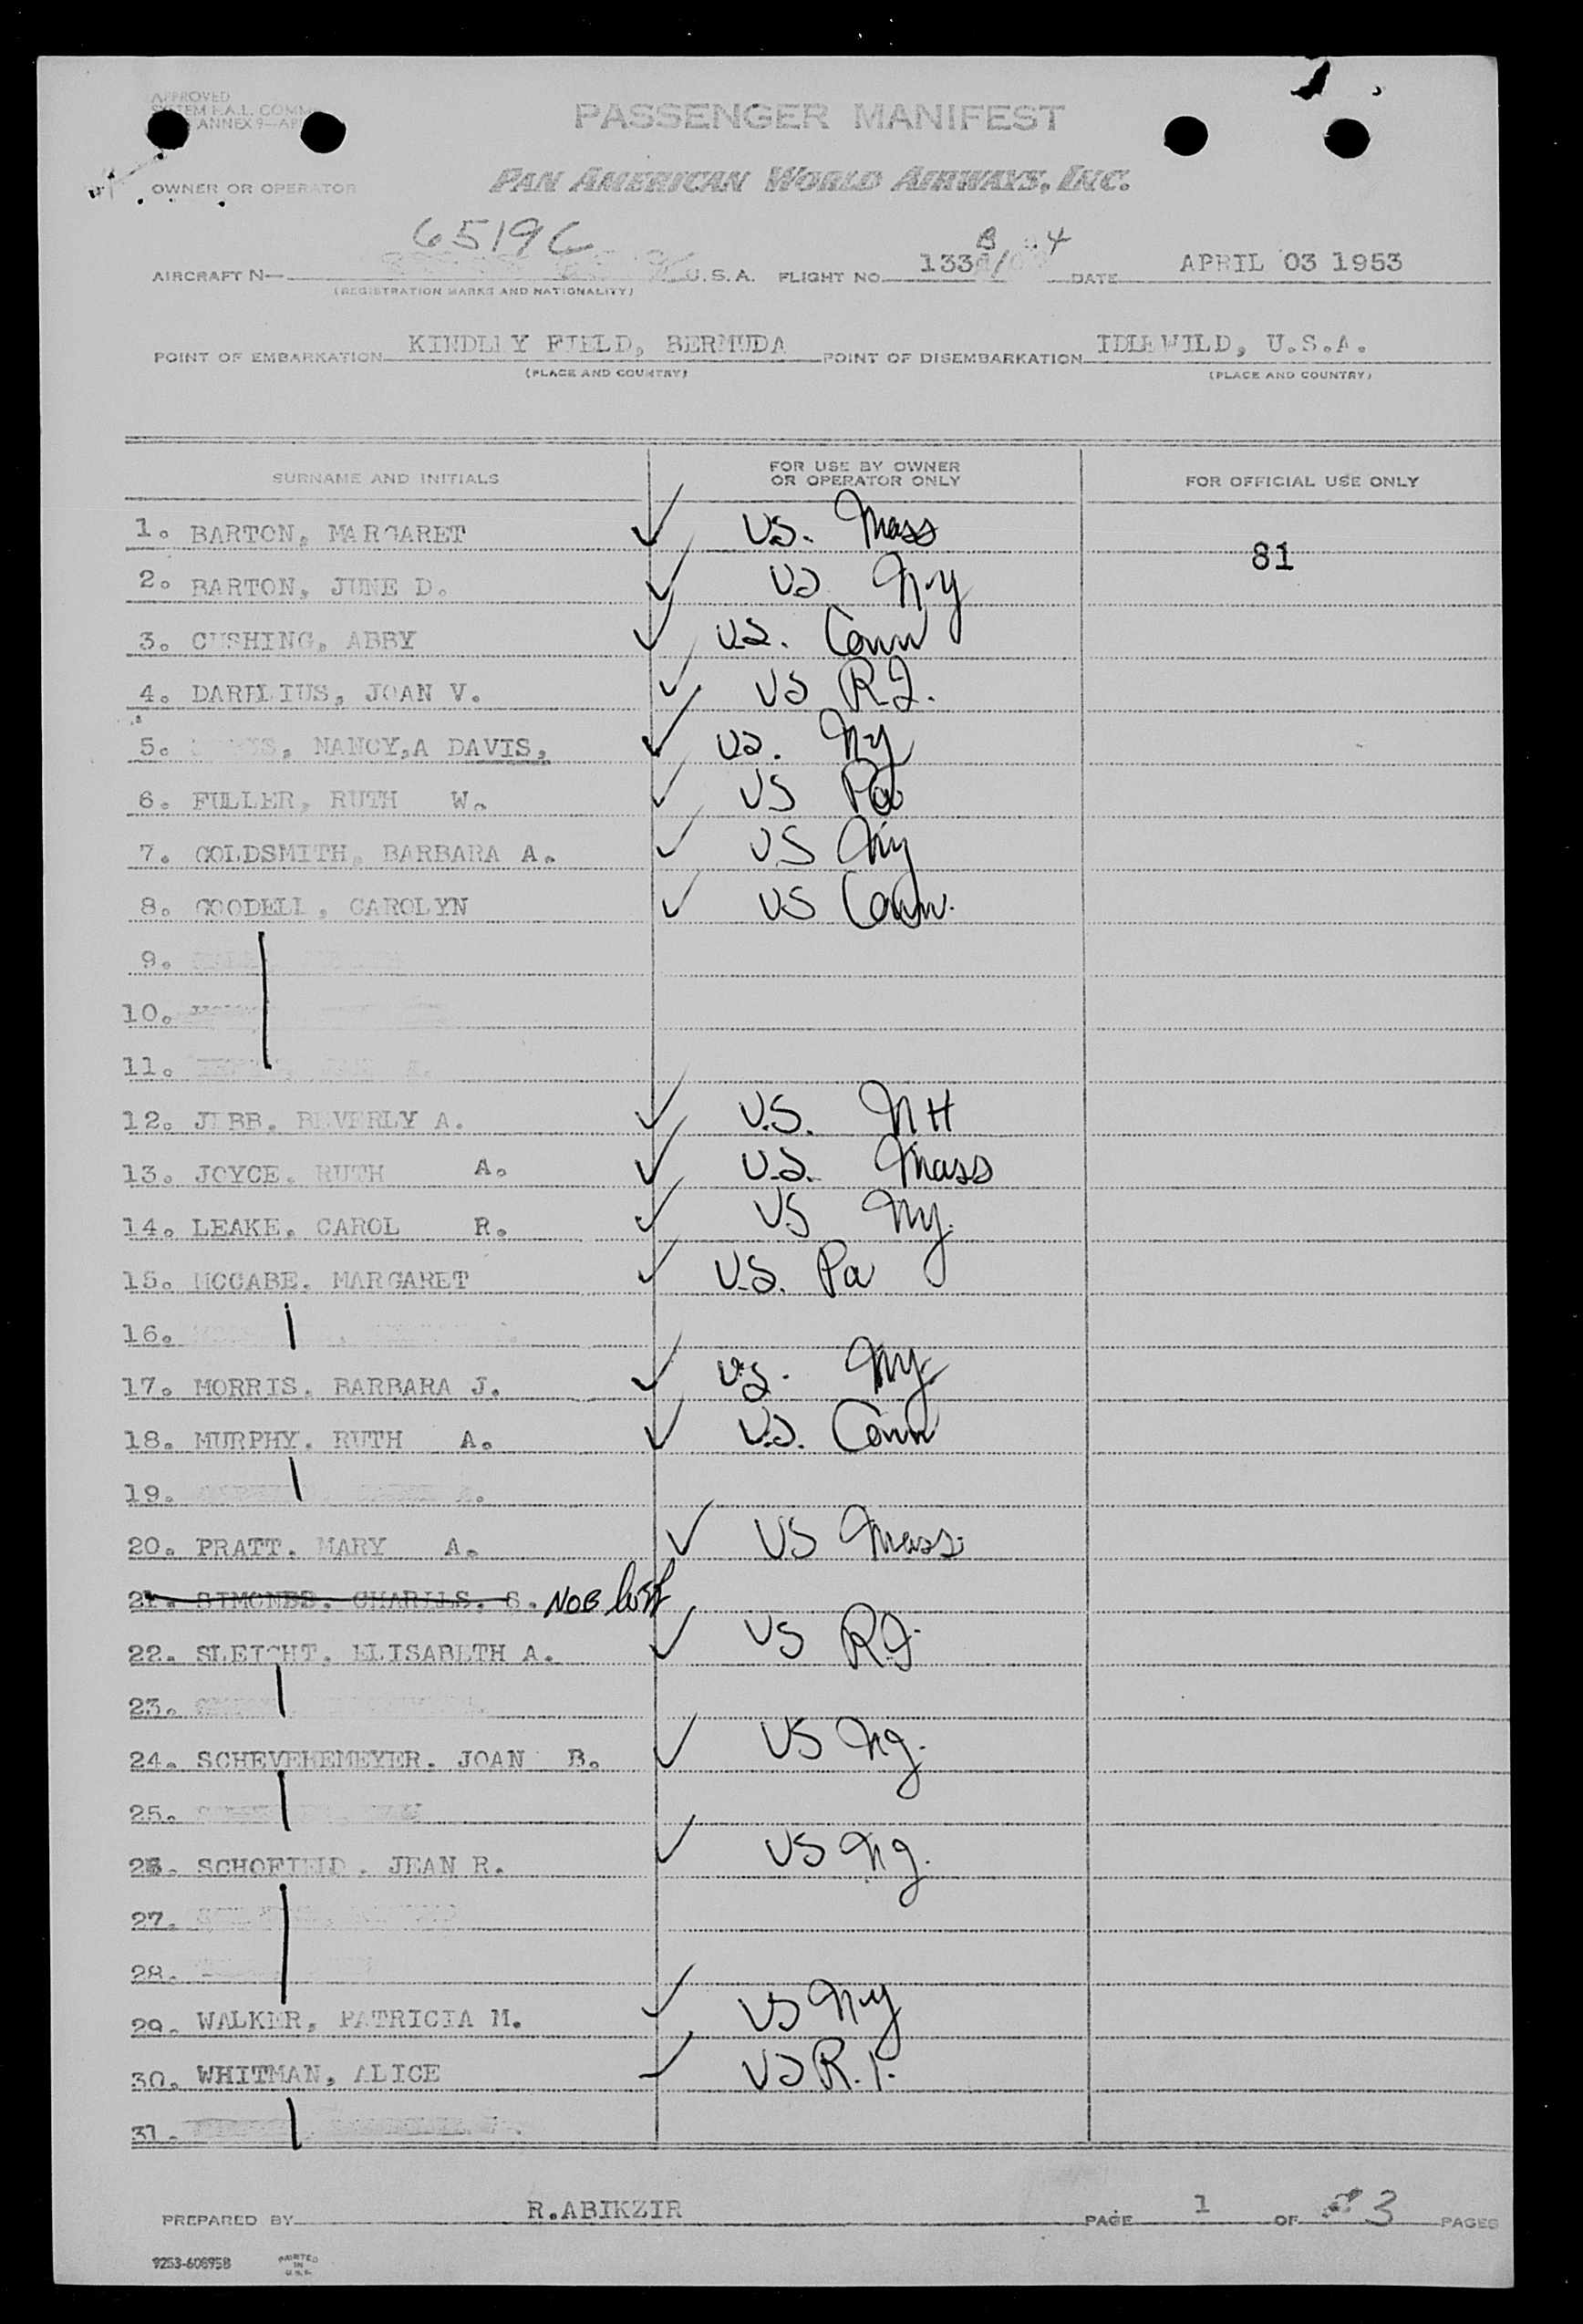 APPROVED
ANNEX 9—
PASSENGER MANIFEST
OWNER OR OPERATOR PAN AMERICAN WORLD AIRWAYS, INC.
6519C
AIRCRAFT N— U.S.A. FLIGHT NO. 133 B 4 DATE APRIL 03 1953
(REGISTRATION MARKS AND NATIONALITY)
POINT OF EMBARKATION KINDLEY FIELD, BERMUDA POINT OF DISEMBARKATION IDLEWILD, U.S.A.
(PLACE AND COUNTRY) (PLACE AND COUNTRY)
SURNAME AND INITIALS FOR USE BY OWNER OR OPERATOR ONLY FOR OFFICIAL USE ONLY
1. BARTON, MARGARET ✓ US. Mass 81
2. BARTON, JUNE D. ✓ US N.Y
3. CUSHING, ABBY ✓ U.S. Conn
4. DARILIUS, JOAN V. ✓ US R.I.
5. NANCY,A DAVIS, ✓ US. NY
6. FULLER, RUTH W. ✓ US Pa
7. GOLDSMITH, BARBARA A. ✓ US NY
8. GOODELL, CAROLYN ✓ US Conn.
9.
10.
11.
12. JEBB. BEVERLY A. ✓ U.S. NH
13. JOYCE. RUTH A. ✓ U.S. Mass
14. LEAKE. CAROL R. ✓ US NY.
15. MCCABE. MARGARET ✓ U.S. Pa
16.
17. MORRIS. BARBARA J. ✓ U.S. NY.
18. MURPHY. RUTH A. ✓ U.S. Conn
19.
20. PRATT. MARY A. ✓ US Mass
21. SIMONDS. CHARLES. S. NOB
22. SLEIGHT. ELISABETH A. ✓ US R.I.
23.
24. SCHEVEHEMEYER. JOAN B. ✓ US NY.
25.
26. SCHOFIELD. JEAN R. ✓ US NY.
27.
28.
29. WALKER, PATRICIA M. ✓ US N.Y
30. WHITMAN, ALICE ✓ US R.I.
31.
PREPARED BY R.ABIKZIR PAGE 1 OF 3 PAGES
9253-60895B PRINTED IN U.S.A.